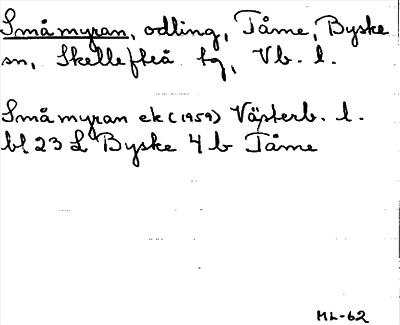 Småmyran, odling, Tåme, Byske
sn, Skellefteå tg, Vb. l.
Småmyran ek (1959) Västerb. l.
bl 23 L Byske 4 b Tåme
ML-62